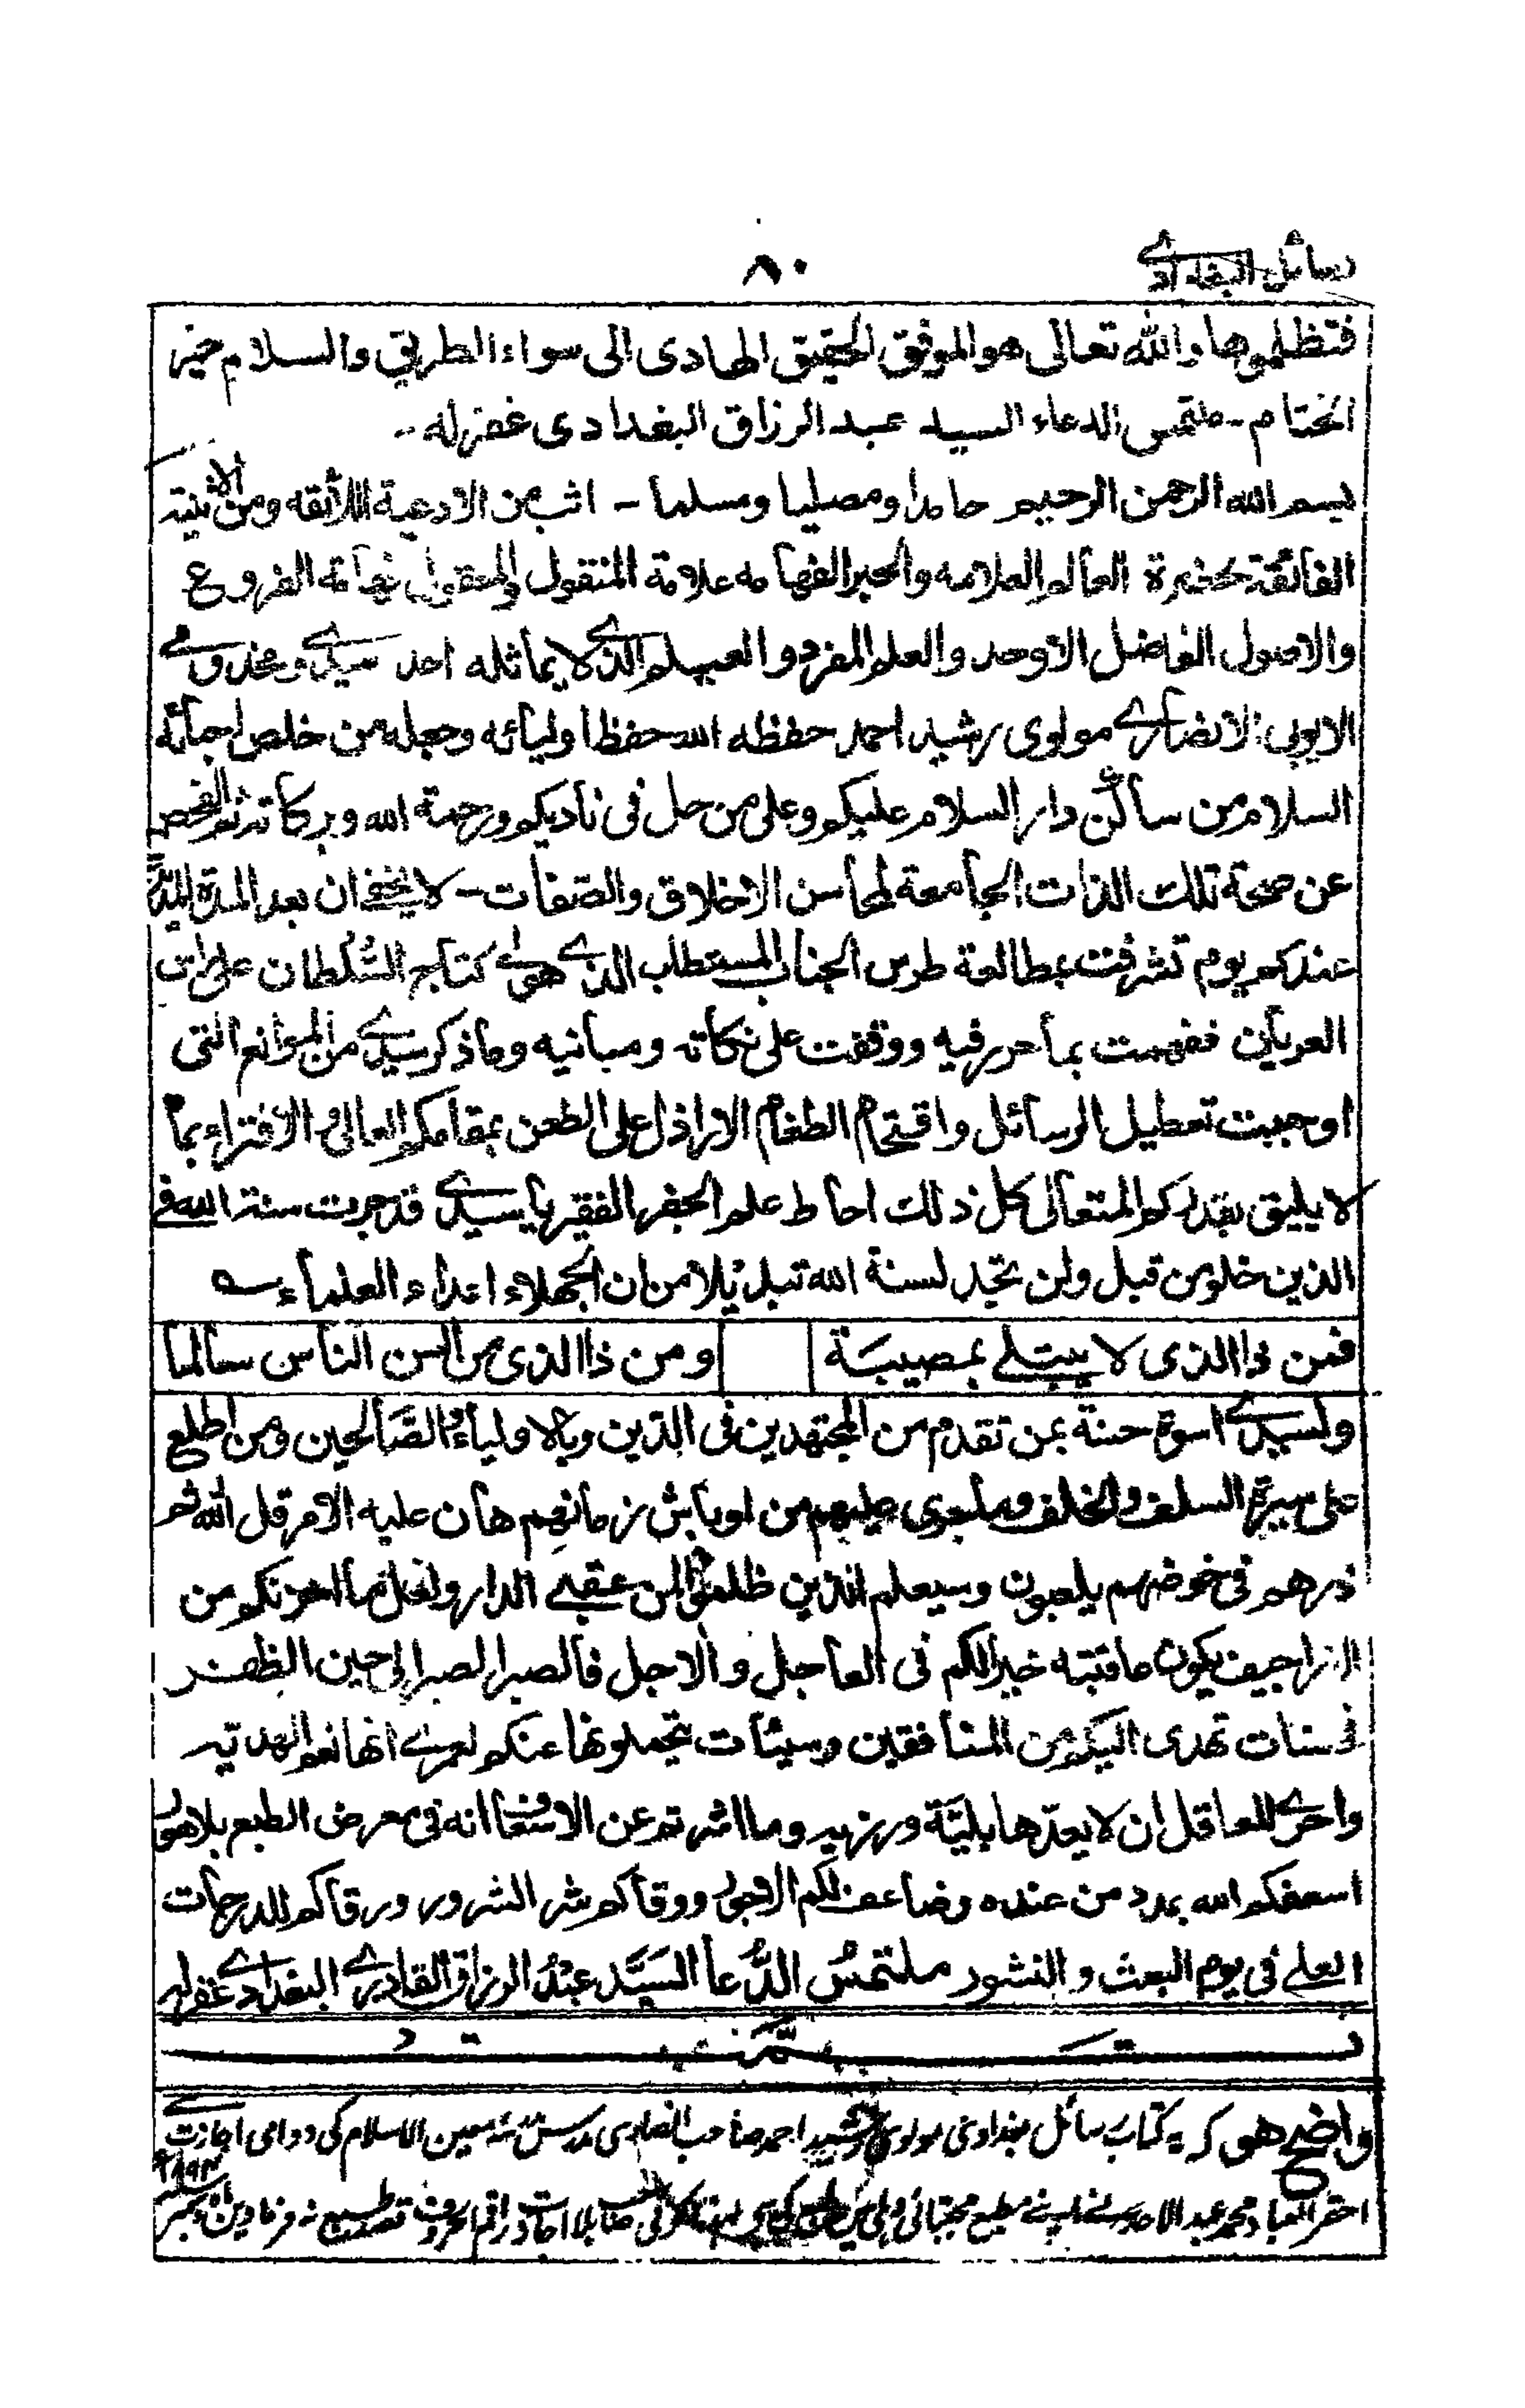 رسائل البغدادے
٨٠
فتظلموها والله تعالى هو الموثق الحقيق الهادى الى سواء الطريق والسلام خير
الختام - ملتمس الدعاء السيد عبد الرزاق البغدادى غفرله -
بسم الله الرحمن الرحيم حامدا ومصليا ومسلما - اثب من الادعية اللائقه ومن الاثنية
الفائقة لحضرة العالم العلامه والحبر الفهامه علامة المنقول والمعقول فهامة الفروع
والاصول الفاضل الاوحد والعلم المفرد و الذے لا يماثله احد سيدے ومخدومے
الايوبى الانصارے مولوى رشيد احمد حفظه الله حفظ اوليائه وجعله من خلص احبائه
السلام من ساكن دار السلام عليكم وعلى من حل فى ناديكم ورحمة الله وبركاته ثم الفحص
عن صحة تلك الذات الجامعة لمحاسن الاخلاق والصفات - لا يخفے ان بعد المدة
عندكم يوم تشرفت بمطالعة طرس الجناب المستطاب الذے هو كتاج السلطان على راس
العريان ففهمت بما حرر فيه ووقفت على نكاته ومبانيه وما ذكر سيدے من الموانع التى
اوجبت تعطيل الرسائل واقتحام الطغام الاراذل على الطعن بمقامكم العالى والافتراء بما
لا يليق بقدركم المتعالى كل ذلك احاط علم الحقير الفقير يا سيدے قد جرت سنة الله فى
الذين خلو من قبل ولن تجد لسنة الله تبديلا من ان الجهلاء اعداء العلماء ؎
فمن ذا الذى لا يبتلے بمصيبة ومن ذا الذى من السن الناس سالما
ولسيدے اسوة حسنة بمن تقدم من المجتهدين فى الدين وبالاولياء والصالحين ومن اطلع
على سيرة السلف والخلف وما جرى عليهم من اوباش زمانهم هان عليه الامر قل الله ثم
ذرهم فى خوضهم يلعبون وسيعلم الذين ظلموا لمن عقبے الدار ولعل ما احزنكم من
الاراجيف يكون عاقبته خيرا لكم فى العاجل والاجل فالصبر الصبر الى حين الظفر
تهدى اليكم من المنافقين وسيئات يتحملونها عنكم لعمرے انها نعم الهدية
واحرے للعاقل ان لا يعدها بلية ورزية وما اشرتم عن انه فى معرض الطبع
اسعفكم الله بمدد من عنده وضاعف لكم الاجور ووقاكم شر الشرور ورقاكم للدرجات
العلے فى يوم البعث والنشور ملتمس الدعا السيد عبد الرزاق القادرے البغدادے غفرله
تمت
واضح هو كه يه كتاب رسائل بغدادى مولوى رشيد احمد صاحب انصارى مدرسه معين الاسلام كى دوامى اجازت سے
احقر العباد محمد عبد الاحد نے اپنے مطبع مجتبائى دہلى كوئى صاحب بلا اجازت راقم الحروف قصد طبع نہ فرماويں